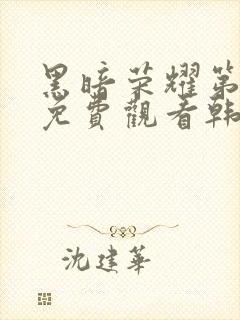 黑暗荣耀第
免費觀看韩
沈建華